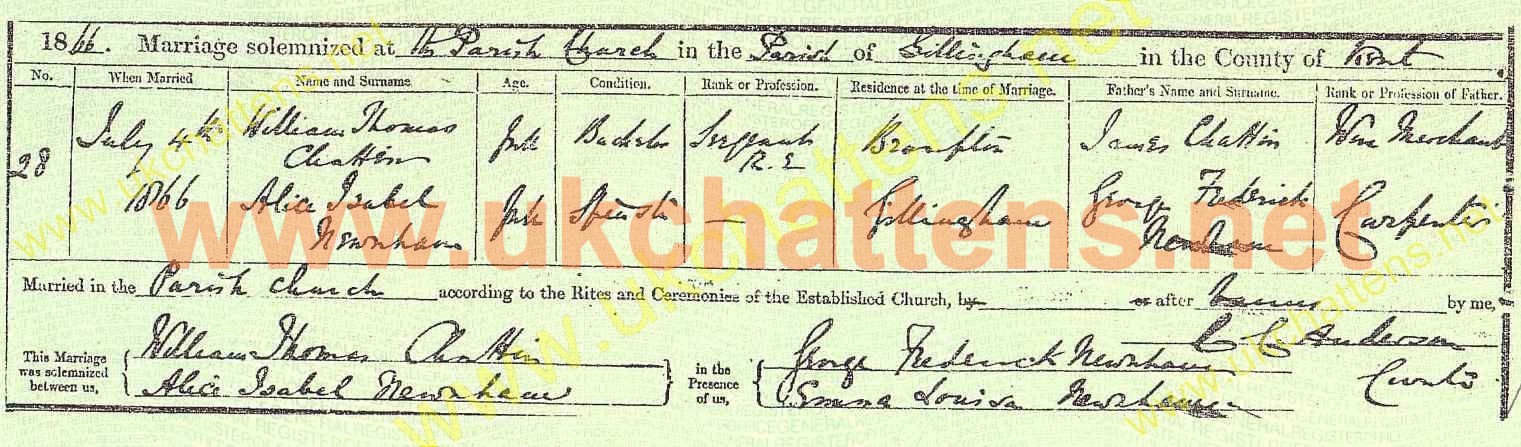 1866. Marriage solemnized at the Parish Church in the Parish of Gillingham in the County of Kent
No. When Married Name and Surname Age. Condition. Rank or Profession. Residence at the time of Marriage. Father's Name and Surname. Rank or Profession of Father.
28 July 4th 1866 William Thomas Chatten Full Bachelor Sergeant R.E Brompton James Chatten Merchant
Alice Isabel Newnham Full Spinster — Gillingham George Frederick Newnham Carpenter
www.ukchattens.net
Married in the Parish Church according to the Rites and Ceremonies of the Established Church, by or after Banns by me,
C C Anderson
Curate
This Marriage was solemnized between us, William Thomas Chatten in the Presence of us, George Frederick Newnham
Alice Isabel Newnham Emma Louisa Newnham
www.ukchattens.net
www.ukchattens.net
www.ukchattens.net
www.ukchattens.net